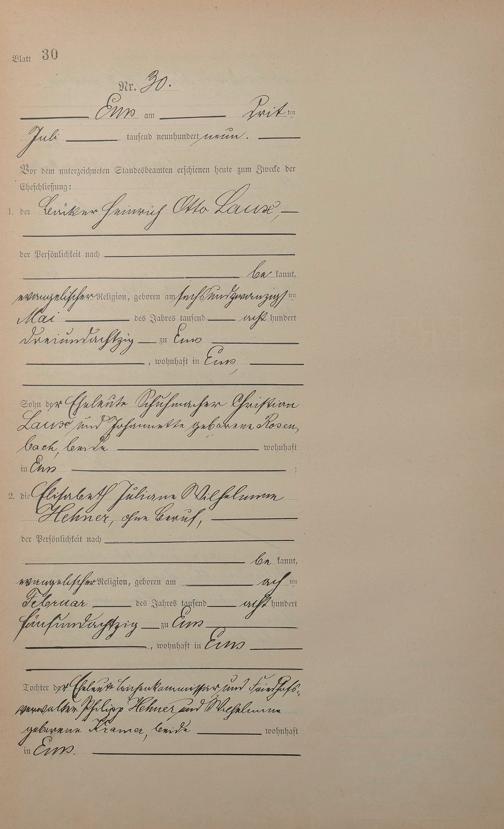 Blatt 30
Nr. 30.
Ems am Drit ten
Juli tausend neunhundert neun.
Vor dem unterzeichneten Standesbeamten erschienen heute zum Zwecke der
Eheschließung:
1. der Bäcker Heinrich Otto Laux,
der Persönlichkeit nach
be kannt,
evangelischer Religion, geboren am sechsundzwanzigsten
Mai des Jahres tausend acht hundert
dreiundachtzig zu Ems
, wohnhaft in Ems,
Sohn der Eheleute Schuhmacher Christian
Laux und Johannette geborene Rosen,
bach, beide wohnhaft
in Ems ;
2. die Elisabeth Juliane Wilhelmine
Hehner, ohne Beruf,
der Persönlichkeit nach
be kannt,
evangelischer Religion, geboren am ach ten
Februar des Jahres tausend acht hundert
fünfundachtzig zu Ems
, wohnhaft in Ems
Tochter der Eheleute und Friedhofs-
verwalter Philipp Hehner und Wilhelmine
geborene Kramer, beide wohnhaft
in Ems.